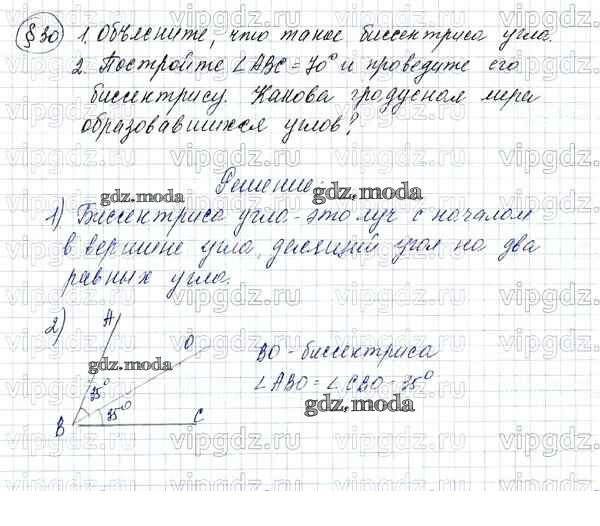 §30 1. Объясните, что такое биссектриса угла.
2. Постройте ∠ABC = 70° и проведите его
биссектрису. Какова градусная мера
образовавшихся углов?
Решение:
gdz.moda
gdz.moda
1) Биссектриса угла - это луч с началом
в вершине угла, делящий угол на два
равных угла.
2) A
O
BO - биссектриса
gdz.moda
∠ABO = ∠CBO = 35°
35°
gdz.moda
B 35° C
vipgdz.ru